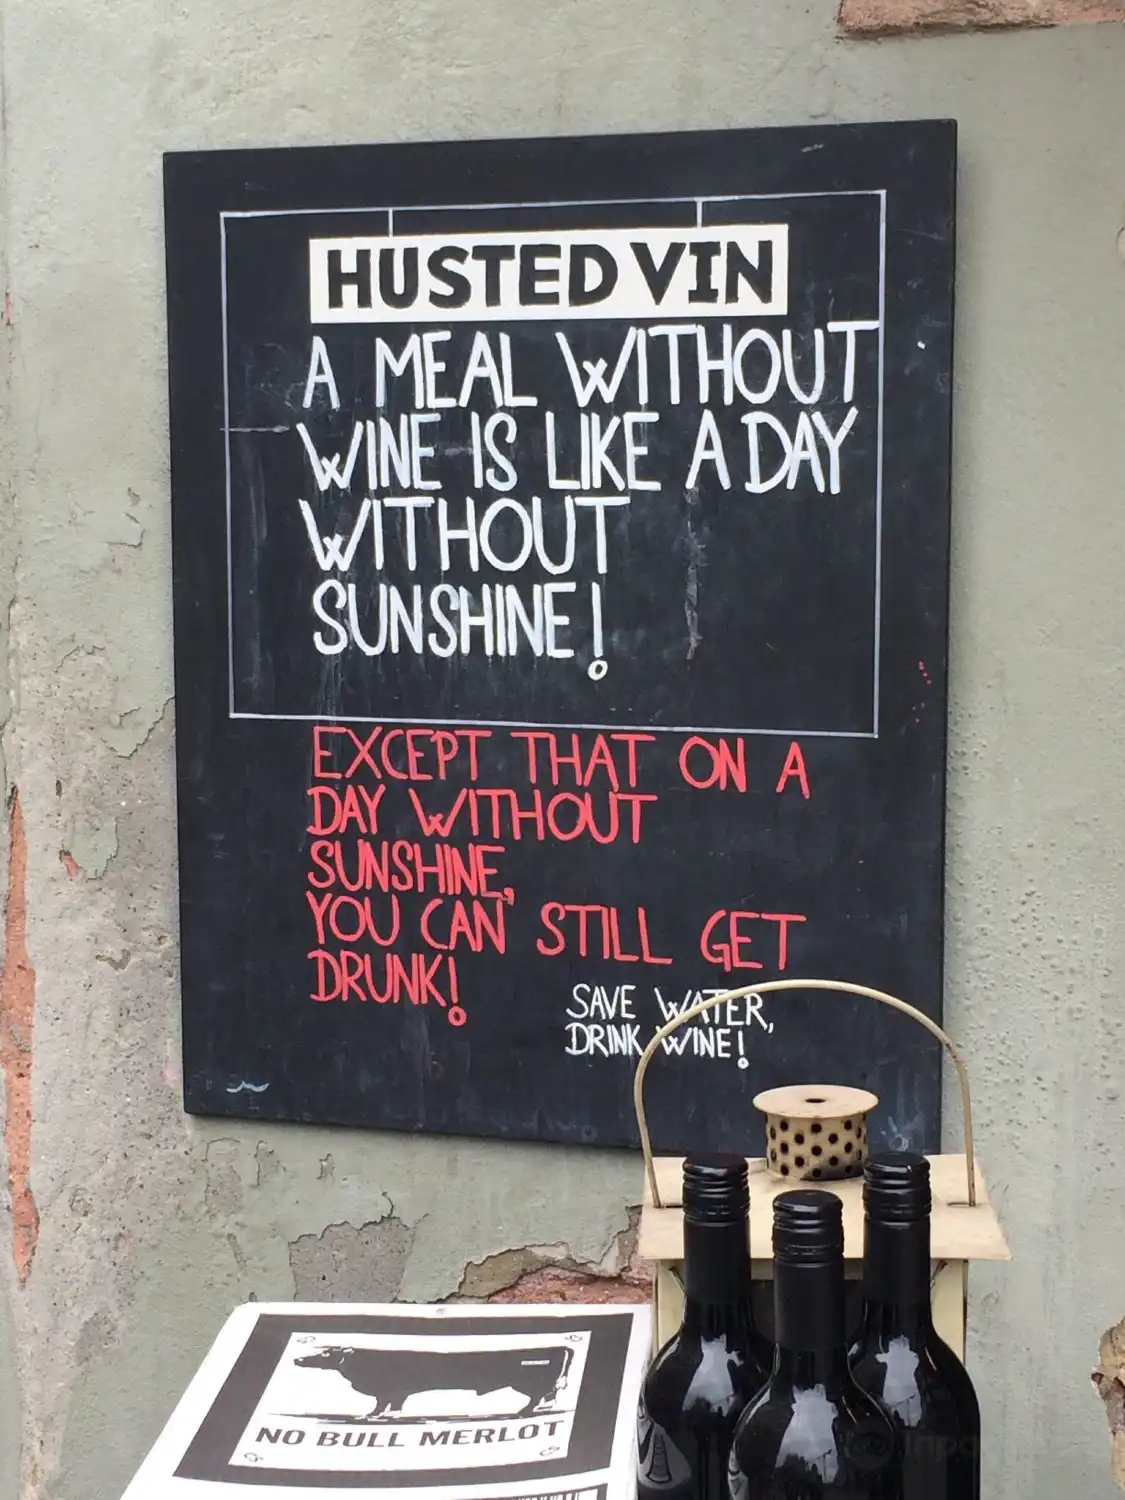 HUSTED VIN
A MEAL WITHOUT
WINE IS LIKE A DAY
WITHOUT
SUNSHINE!
EXCEPT THAT ON A
DAY WITHOUT
SUNSHINE,
YOU CAN STILL GET
DRUNK!
SAVE WATER,
DRINK WINE!
NO BULL MERLOT